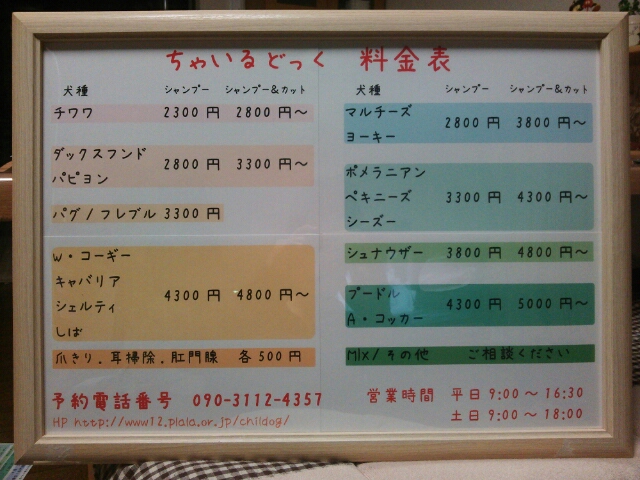 ちゃいるどっく 料金表
犬種 シャンプー シャンプー&カット
チワワ 2300円 2800円～
ダックスフンド
パピヨン 2800円 3300円～
パグ/フレブル 3300円
W・コーギー
キャバリア
シェルティ
しば 4300円 4800円～
爪きり.耳掃除.肛門腺 各500円
犬種 シャンプー シャンプー&カット
マルチーズ
ヨーキー 2800円 3800円～
ポメラニアン
ペキニーズ
シーズー 3300円 4300円～
シュナウザー 3800円 4800円～
プードル
A・コッカー 4300円 5000円～
MIx/その他 ご相談ください
予約電話番号 090-3112-4357
HP http://www12.plala.or.jp/chiidog/
営業時間 平日9:00～16:30
土日9:00～18:00